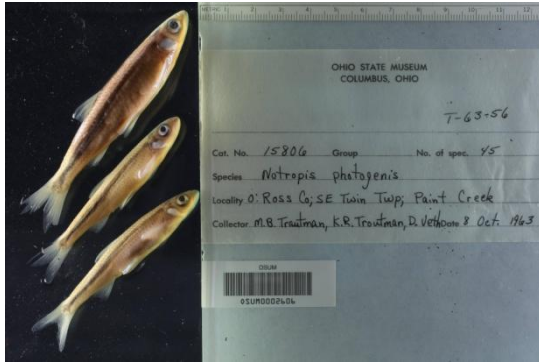 1 2 3 4 5 6 7 8 9 10 11 12
OHIO STATE MUSEUM
COLUMBUS, OHIO
T-63-56
Cat. No. 15806 Group No. of spec. 45
Species Notropis photogenis
Locality O: Ross Co; SE Twin Twp; Paint Creek
Collector M.B. Trautman, K.R. Trautman, D. Date 8 Oct. 1963
OSUM
OSUM0002606